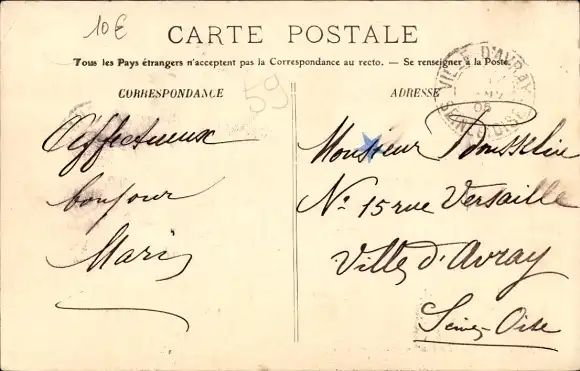 10€
CARTE POSTALE
Tous les Pays étrangers n'acceptent pas la Correspondance au recto. — Se renseigner à la Poste.
CORRESPONDANCE
59
ADRESSE
VILLE D'AVRAY
05
SEINE-ET-OISE
Affectueux
bonjour
Marie
Monsieur Bousselin
N° 15 rue Versaille
Ville d'Avray
Seine-Oise